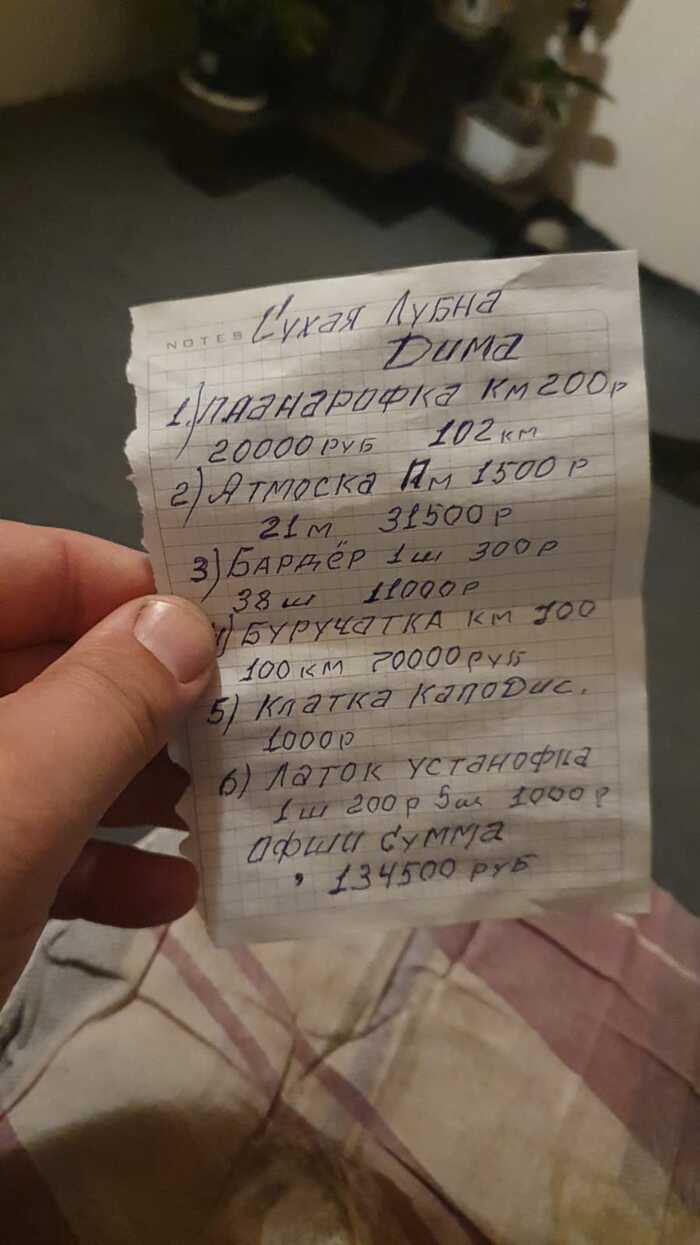 NOTES
Сухая Лубна
Дима
1.) ПЛАНАРОФКА КМ 200Р
20000 РУБ 102 КМ
2) ЯТМОСКА ПМ 1500 Р
21 М 31500 Р
3) БАРДЁР 1 Ш 300 Р
38 Ш 11000Р
4) БУРУЧАТКА КМ 700
100 КМ 70000 РУБ
5) КЛАТКА КАПОДИС.
1000Р
6) ЛАТОК УСТАНОФКА
1 Ш 200 Р 5 Ш 1000 Р
ОФШИ СУММА
134500 РУБ